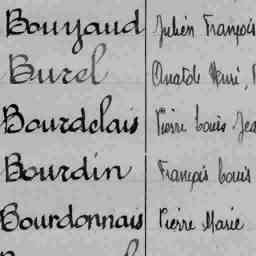 Bouyaud Julien François
Burel Anatole Henri,
Bourdelais Pierre Louis Jea
Bourdin François Louis
Bourdonnais Pierre Marie